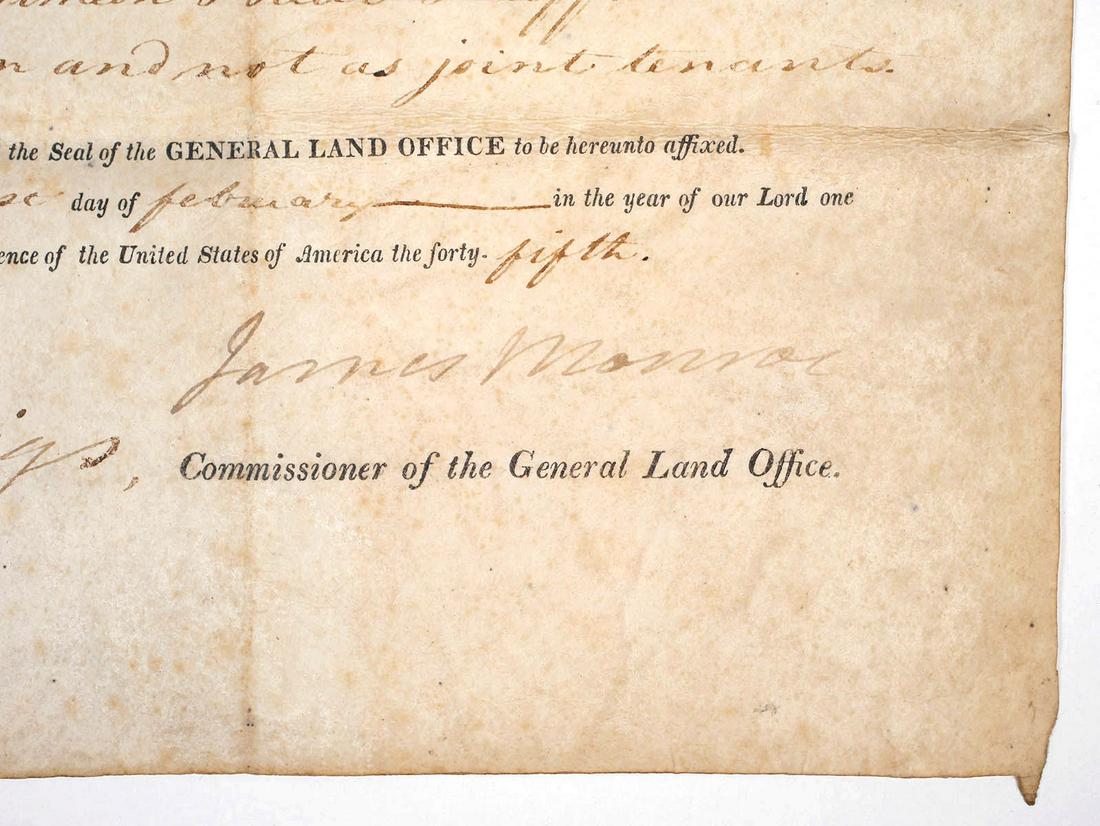 n and not as joint tenants.
the Seal of the GENERAL LAND OFFICE to be hereunto affixed.
day of february in the year of our Lord one
ence of the United States of America the forty-fifth.
James Monroe
gs,
Commissioner of the General Land Office.